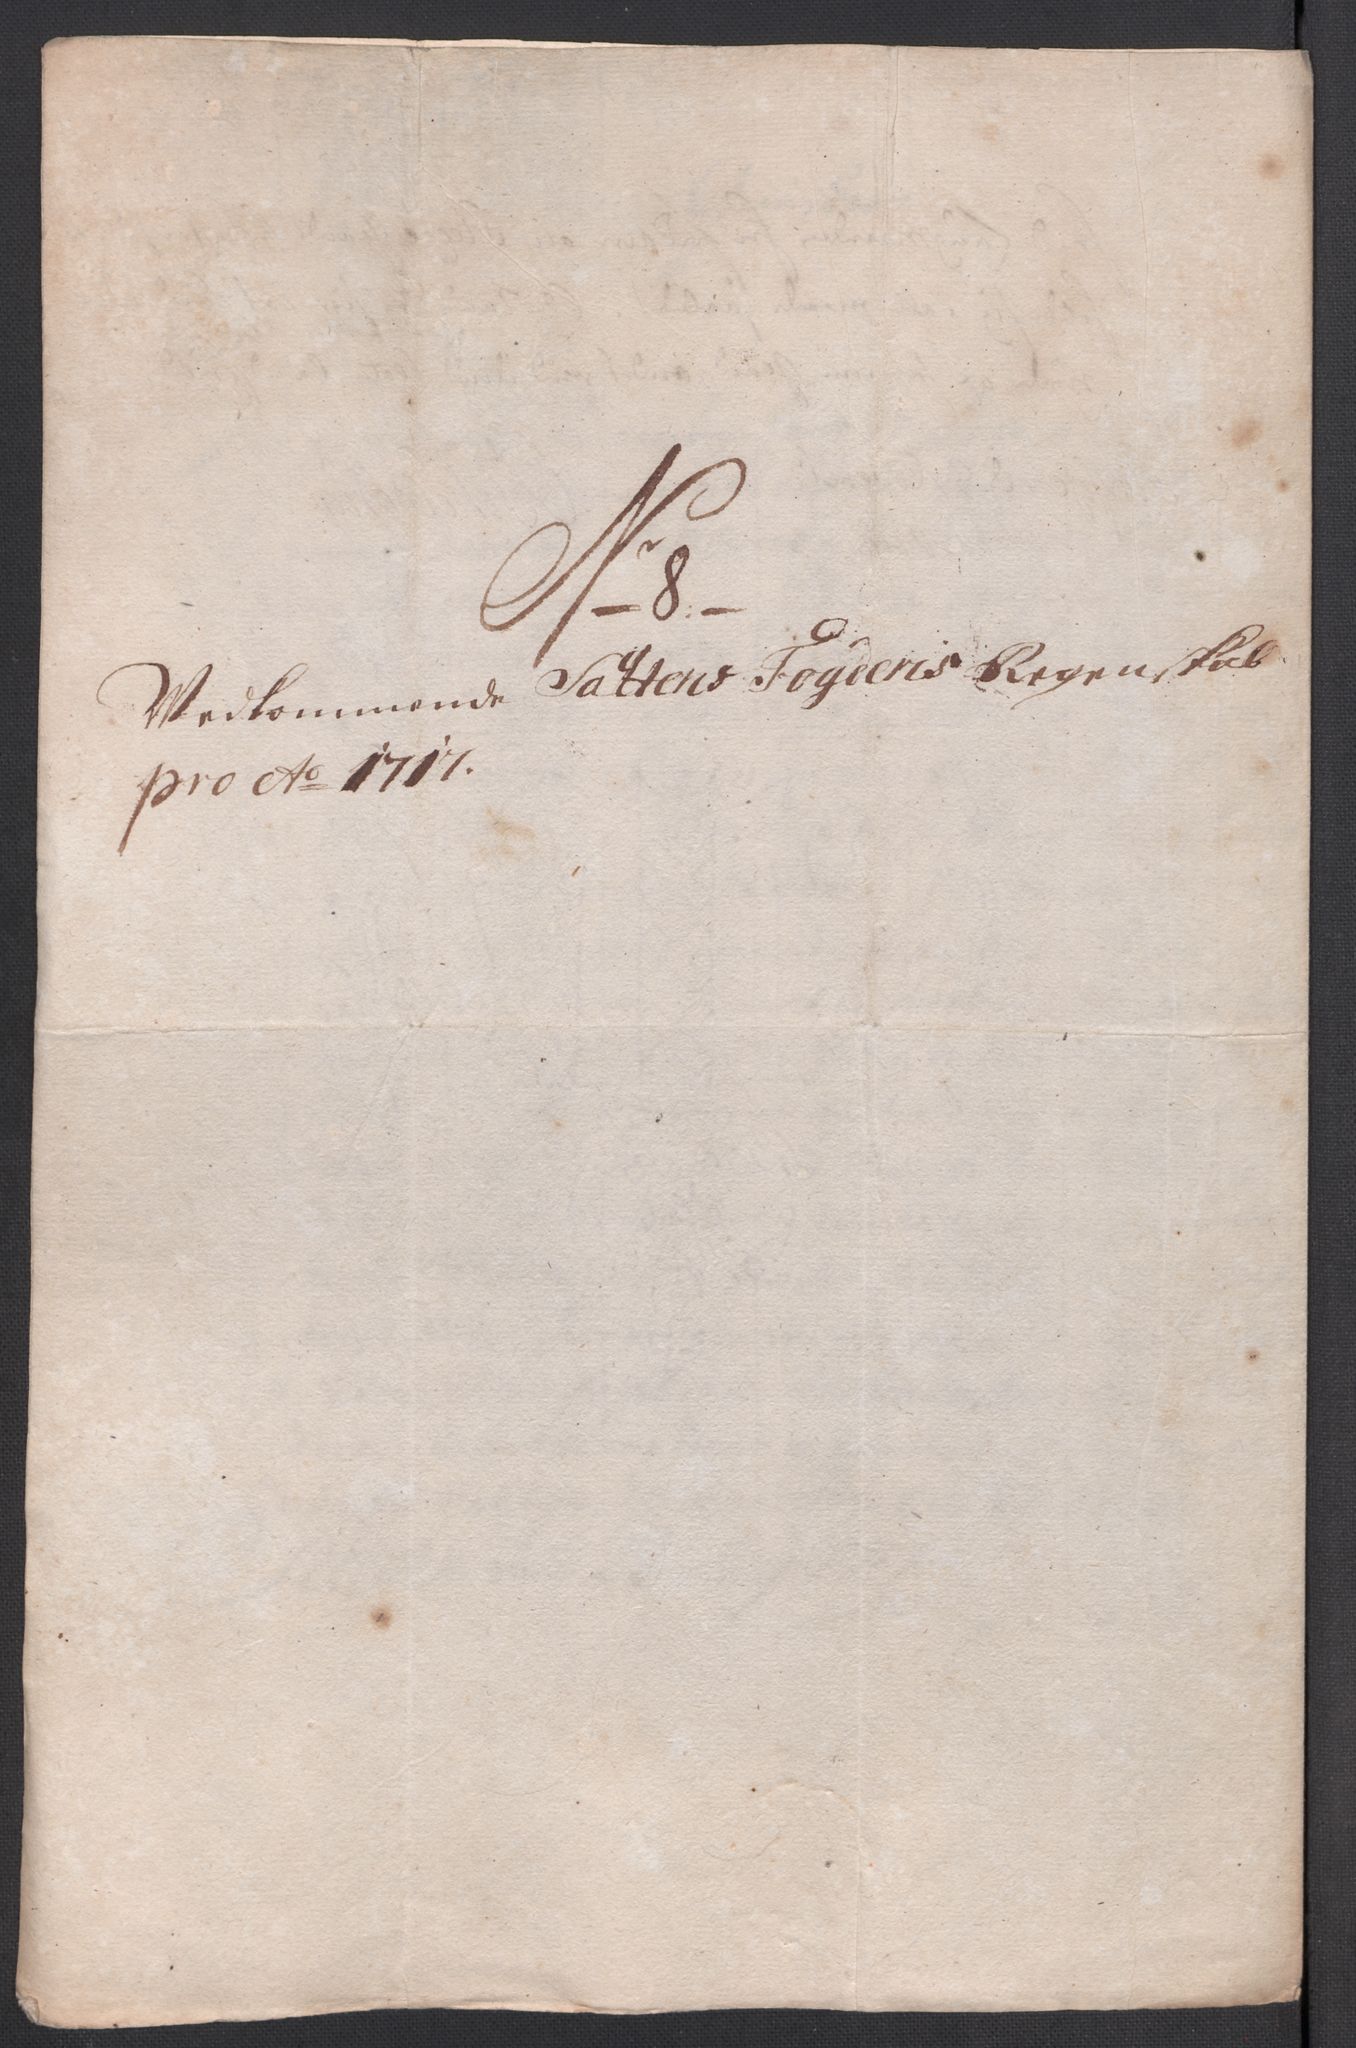 Nr 8.
Vedkommende Saltens Fogderis Regenskab
pro Ao 1717.